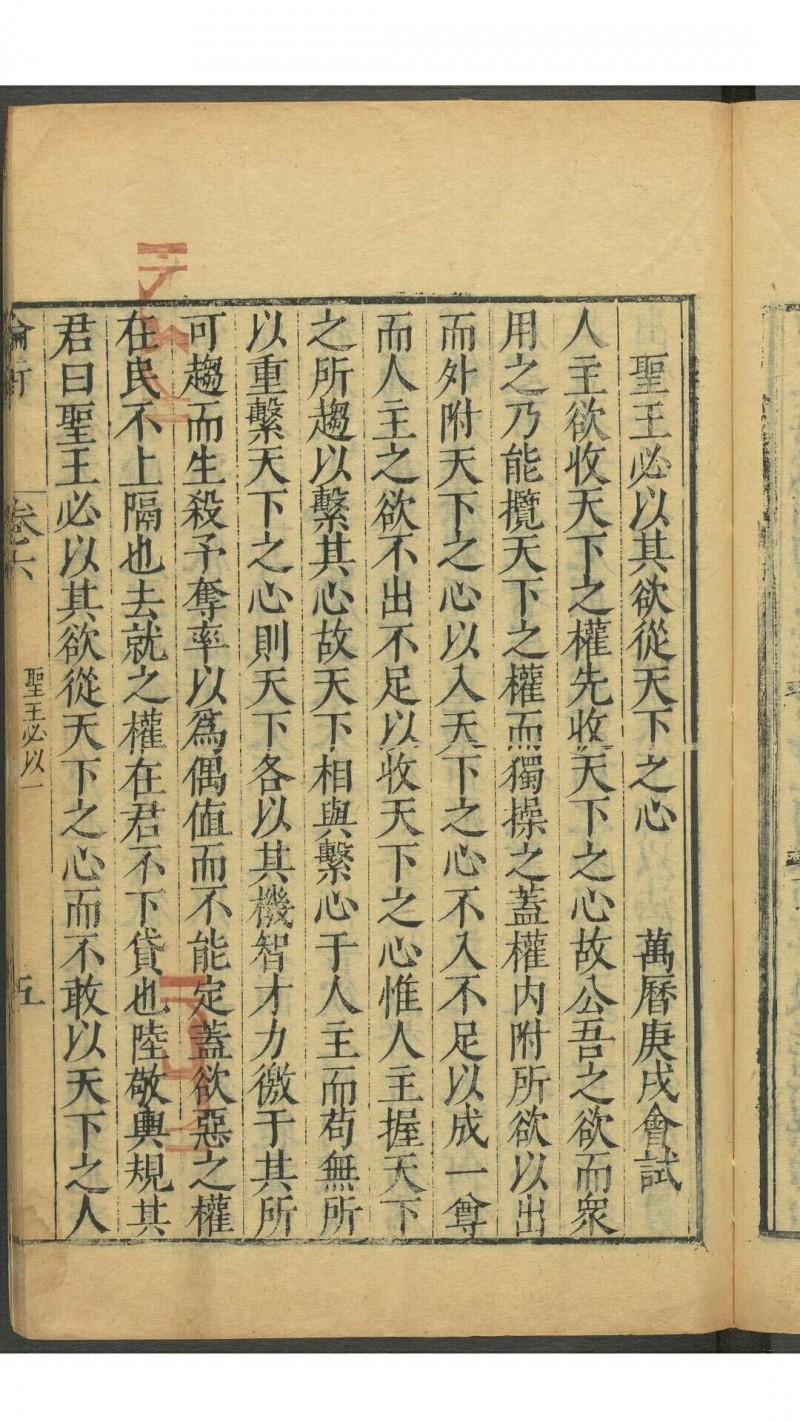 聖王必以其欲從天下之心　萬曆庚戌會試
人主欲收天下之權先收天下之心故公吾之欲而衆
用之乃能攬天下之權而獨操之蓋權内附所欲以出
而外附天下之心以入天下之心不入不足以成一尊
而人主之欲不出不足以收天下之心惟人主握天下
之所趨以繫其心故天下相與繫心于人主而苟無所
以重繫天下之心則天下各以其機智才力徼于其所
可趨而生殺予奪率以爲偶值而不能定蓋欲惡之權
在民不上隔也去就之權在君不下貸也陸敬輿規其
君曰聖王必以其欲從天下之心而不敢以天下之人
卷六
聖王必以一
五